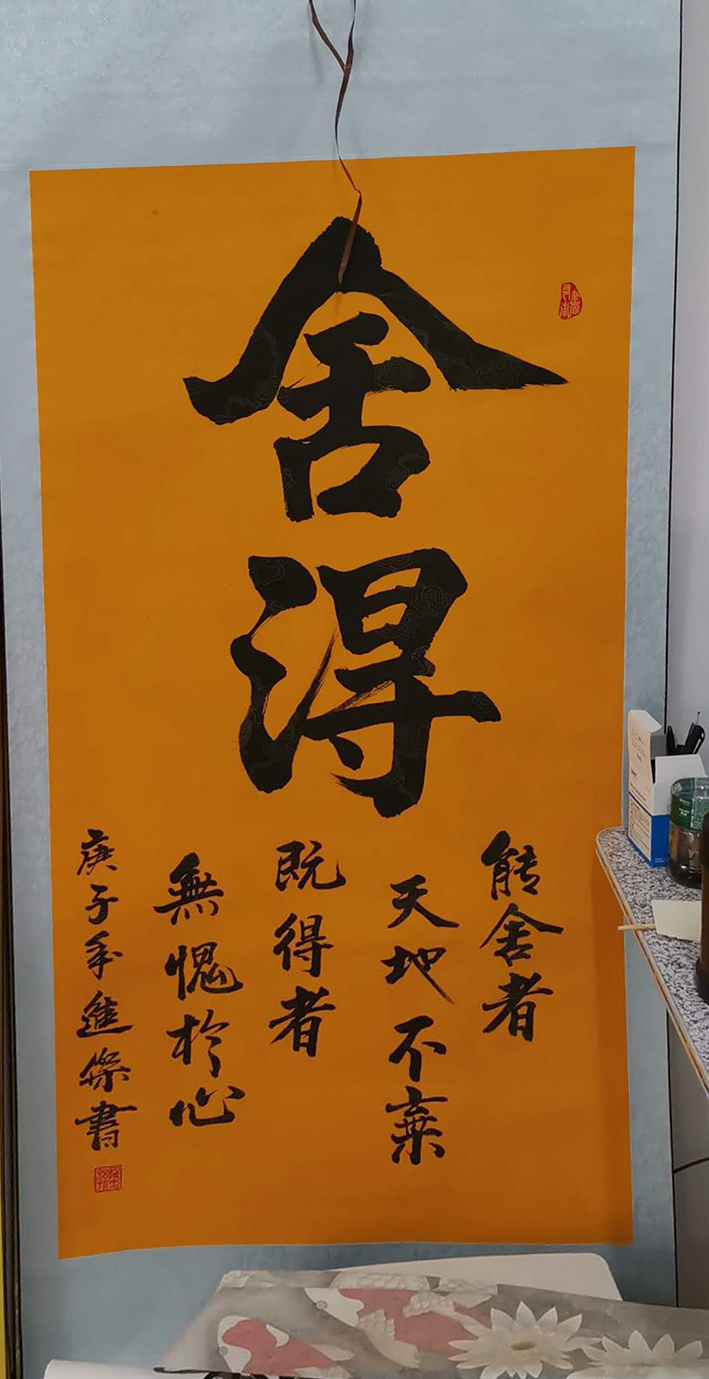 舍得
能舍者
天地不棄
既得者
無愧於心
庚子年進傑書